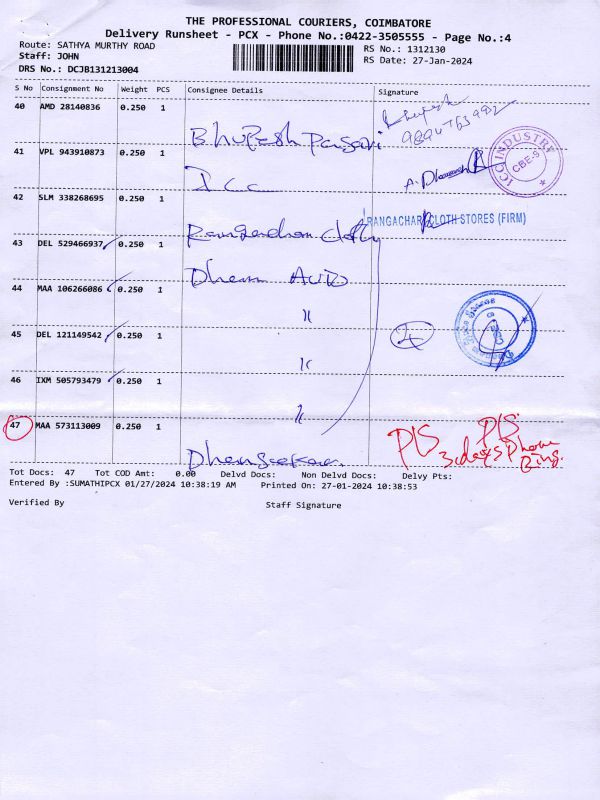 THE PROFESSIONAL COURIERS, COIMBATORE
Delivery Runsheet - PCX - Phone No.:0422-3505555 - Page No.:4
Route: SATHYA MURTHY ROAD
RS No.: 1312130
Staff: JOHN
RS Date: 27-Jan-2024
DRS No.: DCJB131213004
S No Consignment No Weight PCS Consignee Details Signature
40 AMD 28140836 0.250 1
Bhupesh
41 VPL 943910873 0.250 1
ICC
A.
ICC INDUSTRY
CBE-5
42 SLM 338268695 0.250 1
RANGACHARI CLOTH STORES (FIRM)
43 DEL 529466937 0.250 1
Dhanam AUTO
44 MAA 106266086 0.250 1
"
4
45 DEL 121149542 0.250 1
"
46 IXM 505793479 0.250 1
"
47 MAA 573113009 0.250 1
P/S P/S
3 days Phone
Ring.
Tot Docs: 47 Tot COD Amt: 0.00 Delvd Docs: Non Delvd Docs: Delvy Pts:
Entered By :SUMATHIPCX 01/27/2024 10:38:19 AM Printed On: 27-01-2024 10:38:53
Verified By Staff Signature